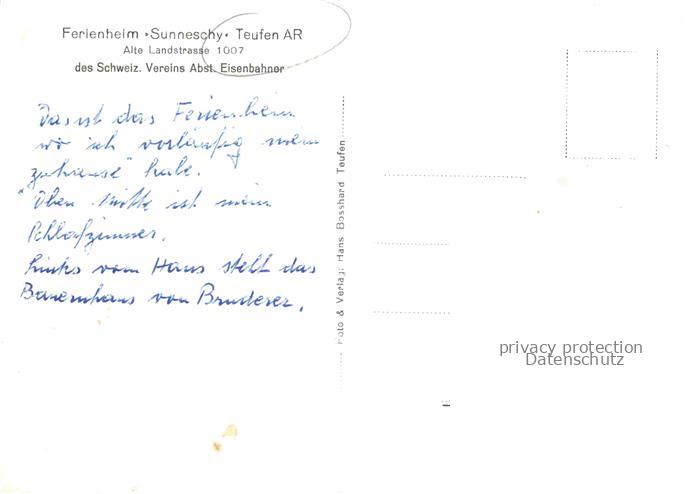 Ferienheim »Sunneschy« Teufen AR
Alte Landstrasse 1007
des Schweiz. Vereins Abst. Eisenbahner
Das ist das Ferienheim
wo ich vorläufig mein
zuhause" habe.
"Oben Mitte ist mein
Schlafzimmer.
Links vom Haus steht das
Bauernhaus von Bruderer.
Foto & Verlag: Hans Bosshard Teufen
privacy protection
Datenschutz